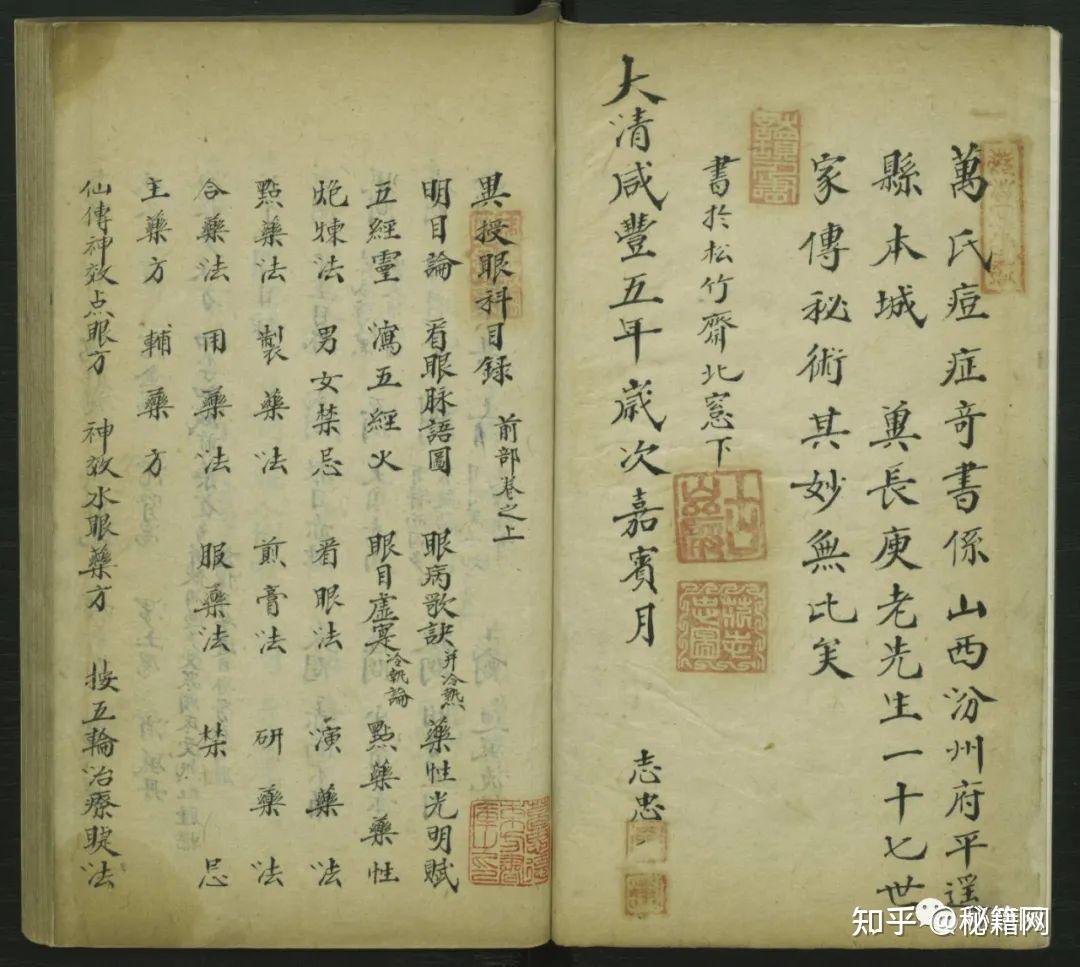 萬氏痘症奇書係山西汾州府平遥
縣本城 兾長庚老先生一十七世
家傳秘術其妙無比矣
書於松竹齋北窓下
大清咸豐五年歲次嘉賓月 志忠
異授眼科目録 前部卷之上
明目論 看眼脉語圖 眼病歌訣并冷熱 藥性光明賦
五經靈 瀉五經火 眼目虛寔冷熱論 點藥藥性
炮煉法 男女禁忌 看眼法 演藥法
點藥法 製藥法 煎膏法 研藥法
合藥法 用藥法 服藥法 禁忌
主藥方 輔藥方
仙傳神效点眼方 神效水眼藥方 按五輪治療眼法
知乎 @秘籍网